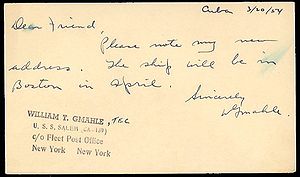 Cuba 3/20/54
Dear Friend,
Please note my new
address. The ship will be in
Boston in April.
Sincerely
WGmahle.
WILLIAM T. GMAHLE, TEC
U. S. S. SALEM (CA-139)
c/o Fleet Post Office
New York New York